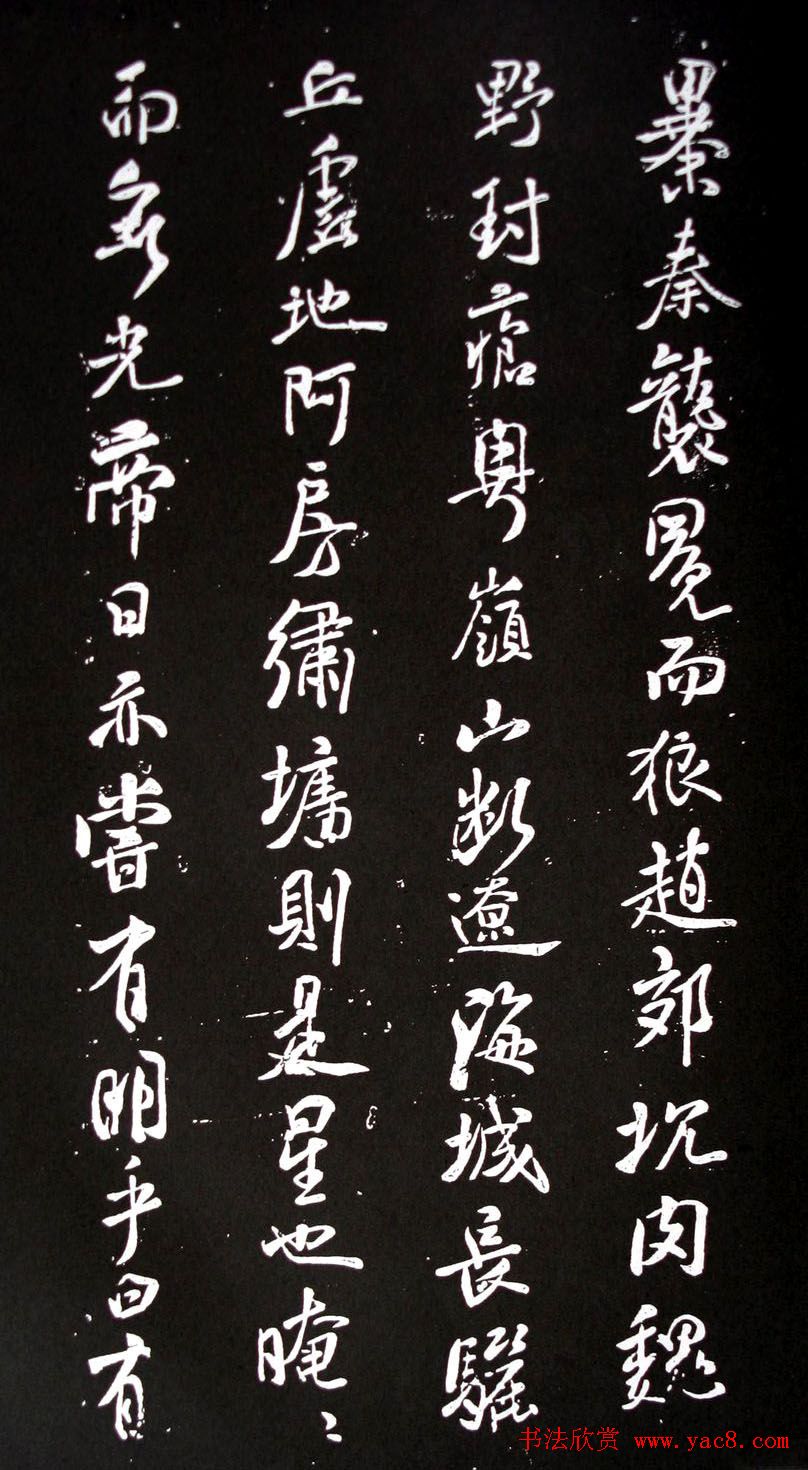 暴秦襲冕而狼趙郊坑肉魏
野封瘡粤嶺山断遼海城長驪
丘虚地阿房繡墉則是星也晻〻
而無光帝曰亦嘗有明乎曰有
书法欣赏 www.yac8.com